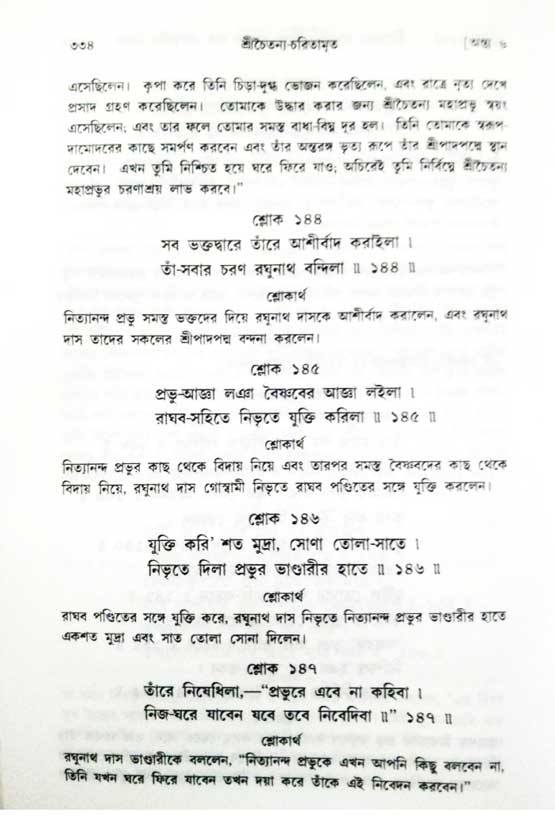 ৩৩৪ শ্রীচৈতন্য-চরিতামৃত [অন্ত্য ৬
এসেছিলেন। কৃপা করে তিনি চিড়া-দুগ্ধ ভোজন করেছিলেন, এবং রাত্রে নৃত্য দেখে
প্রসাদ গ্রহণ করেছিলেন। তোমাকে উদ্ধার করার জন্য শ্রীচৈতন্য মহাপ্রভু স্বয়ং
এসেছিলেন; এবং তার ফলে তোমার সমস্ত বাধা-বিঘ্ন দূর হল। তিনি তোমাকে স্বরূপ-
দামোদরের কাছে সমর্পণ করবেন এবং তাঁর অন্তরঙ্গ ভৃত্য রূপে তাঁর শ্রীপাদপদ্মে স্থান
দেবেন। এখন তুমি নিশ্চিত হয়ে ঘরে ফিরে যাও; অচিরেই তুমি নির্বিঘ্নে শ্রীচৈতন্য
মহাপ্রভুর চরণাশ্রয় লাভ করবে।”
শ্লোক ১৪৪
সব ভক্তদ্বারে তাঁরে আশীর্বাদ করাইলা ।
তাঁ-সবার চরণ রঘুনাথ বন্দিলা ॥ ১৪৪ ॥
শ্লোকার্থ
নিত্যানন্দ প্রভু সমস্ত ভক্তদের দিয়ে রঘুনাথ দাসকে আশীর্বাদ করালেন, এবং রঘুনাথ
দাস তাদের সকলের শ্রীপাদপদ্ম বন্দনা করলেন।
শ্লোক ১৪৫
প্রভু-আজ্ঞা লঞা বৈষ্ণবের আজ্ঞা লইলা ।
রাঘব-সহিতে নিভৃতে যুক্তি করিলা ॥ ১৪৫ ॥
শ্লোকার্থ
নিত্যানন্দ প্রভুর কাছ থেকে বিদায় নিয়ে এবং তারপর সমস্ত বৈষ্ণবদের কাছ থেকে
বিদায় নিয়ে, রঘুনাথ দাস গোস্বামী নিভৃতে রাঘব পণ্ডিতের সঙ্গে যুক্তি করলেন।
শ্লোক ১৪৬
যুক্তি করি’ শত মুদ্রা, সোণা তোলা-সাতে ।
নিভৃতে দিলা প্রভুর ভাণ্ডারীর হাতে ॥ ১৪৬ ॥
শ্লোকার্থ
রাঘব পণ্ডিতের সঙ্গে যুক্তি করে, রঘুনাথ দাস নিভৃতে নিত্যানন্দ প্রভুর ভাণ্ডারীর হাতে
একশত মুদ্রা এবং সাত তোলা সোনা দিলেন।
শ্লোক ১৪৭
তাঁরে নিষেধিলা,—“প্রভুরে এবে না কহিবা ।
নিজ-ঘরে যাবেন যবে তবে নিবেদিবা ॥” ১৪৭ ॥
শ্লোকার্থ
রঘুনাথ দাস ভাণ্ডারীকে বললেন, “নিত্যানন্দ প্রভুকে এখন আপনি কিছু বলবেন না,
তিনি যখন ঘরে ফিরে যাবেন তখন দয়া করে তাঁকে এই নিবেদন করবেন।”